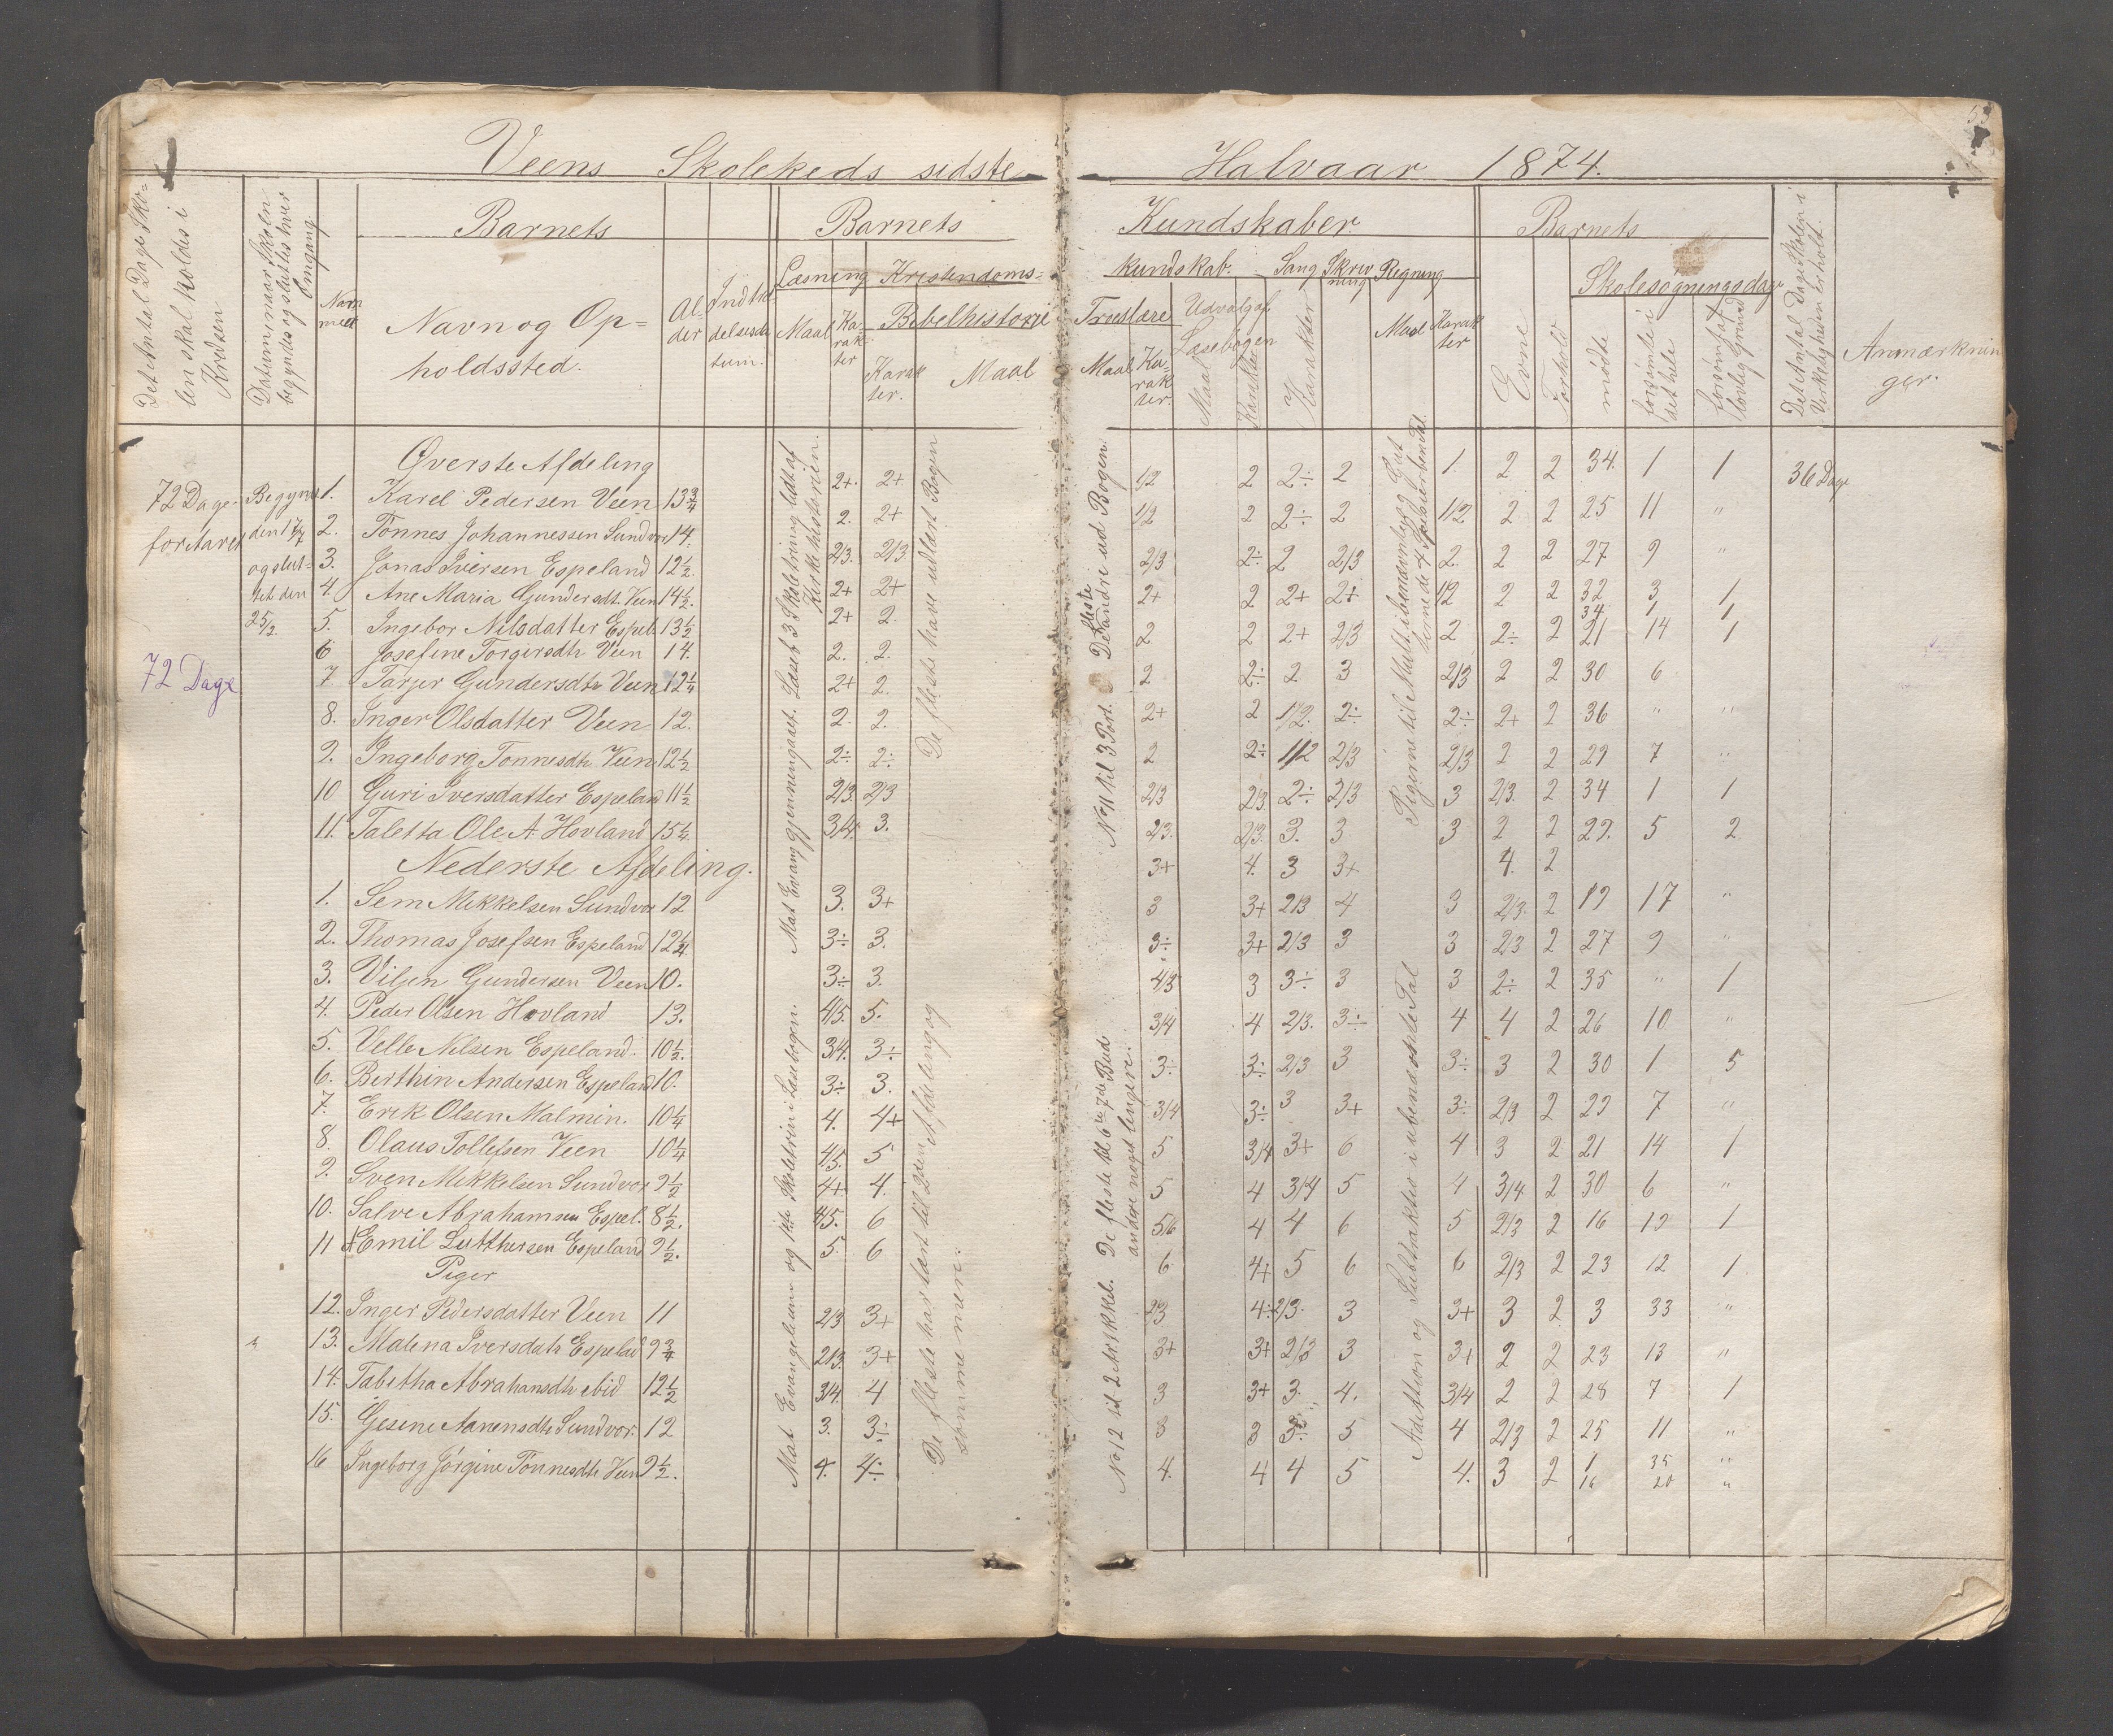 Veens Skolekeds sidste Halvaar 1874.
Det Antal Dage Skolen skal holdes i Kredsen
Datum naar Skolen begyndes og sluttes hver Omgang.
Barnets
Navn og Opholdssted.
Alder
Indtrædelsesdatum.
Barnets Kundskaber
Læsning
Maal
Karakter
Kristendomskundskab.
Bibelhistorie
Karakter.
Maal
Troeslære
Maal
Karakter.
Udvalg af Læsebogen
Maal
Karakter
Sang
Karakter
Skrivning
Regning
Maal
Karakter
Barnets
Evne
Forhold
Skolesøgningsdage
mødte
forsømte i det hele
forsømt af lovlig Grund
Det Antal Dage Skolen i Virkeligheden er holdt.
Anmærkninger.
72 Dage foritaret
72 Dage
Begyndt den 17/7 og sluttet den 25/2.
Øverste Afdeling
1. Karel Pedersen Veen 13 3/4 2+. 2+
2. Tönnes Johannessen Sundvor 14. 2. 2+
3. Jonas Iversen Espeland 12 1/2. 2/3. 2/3
4. Ane Maria Gundersdt. Veen 14 1/2. 2+ 2+
5. Ingebor Nilsdatter Espel. 13 1/2 2+ 2.
6 Josefine Torgersdtr Veen 14. 2. 2.
7 Tarjer Gundersdtr Veen 12 1/4 2+ 2.
8. Inger Olsdatter Veen 12. 2. 2.
9. Ingeborg Tonnesdtr. Veen 12 1/2 2÷ 2÷
10 Guri Iversdatter Espeland 11 1/2 2/3. 2/3
11. Taletta Ole A. Hovland 15 1/4. 3/4. 3.
Nederste Afdeling.
1. Sem Mikkelsen Sundvor 12 3. 3+
2. Thomas Josefsen Espeland 12 1/4. 3÷ 3.
3. Viljen Gundersen Veen 10. 3÷ 3.
4. Peder Olsen Hovland 13. 4/5. 5.
5. Velle Nilsen Espeland. 10 1/2. 3/4. 3÷
6. Berthin Andersen Espeland 10. 3÷ 3.
7. Erik Olsen Malmin. 10 1/4 4. 4+
8. Olaus Tollefsen Veen 10 1/4 4/5. 5
9. Sven Mikkelsen Sundvor 9 1/2 4+ 4.
10. Salve Abrahamsen Espel. 8 1/2. 4/5. 6
11 Emil Lutthersen Espeland 9 1/2. 5. 6
Piger
12. Inger Pedersdatter Veen 11 2/3 3+
13. Malena Iversdatr Espelad 9 3/4 2/3. 3+
14. Tabitha Abrahansdtr ibid 12 1/2 3/4. 4
15. Gesine Aanensdtr Sundvor. 12 3. 3÷
16 Ingeborg Jørgine Tonnesdtr Veen 9 1/2. 4. 4÷
Mat Evang gjennemgaaet. Læsef 3 Skoletrin og lidt af Kirkehistorien.
Mat Evangelium og 1ste Skoletrin i Læsebogen.
De fleste have udlært Bogen
De fleste har lært til 2den Afdeling og somme mere.
No 11 til 3 Part. De fleste andre ud Bogen.
No 12 til 2 Artikkel. De fleste til 6te 7de Bud andre noget lengere.
Pigerne til Mult. i benævnt
Addition og Subtraktion i ubenævnte Tal
1/2 2 2÷ 2 1. 2 2 34. 1 1 36 Dage
1/2 2 2÷ 2 1/2 2 2 25 11 "
2/3 2÷ 2 2/3 2. 2 2 27 9 "
2+ 2 2+ 2+ 1/2 2 2 32 3 1
34. 1 1
2 2 2+ 2/3 2 2÷ 2 21 14 1
2 2÷ 2 3 2/3 2 2 30 6
2+ 2 1/2. 2÷ 2÷ 2+ 2 36 " "
2 2÷ 1/2 2/3 2/3 2 2 29 7 "
2/3 2/3 2÷ 2/3 3 2/3. 2 34 1 1
2/3. 2/3. 3. 3 3 2 2 29. 5 2
3+ 4. 3 3+ 4. 2
3 3+ 2/3 4 3 2/3. 2 19 17 "
3÷ 3+ 2/3 3 3 2/3 2 27 9 "
4/3 3 3÷ 3 3 2÷ 2 35 " 1
3/4 4 2/3. 3÷ 4 4 2 26 10 "
3÷ 3÷ 2/3 3 3÷ 3 2 30 1 5
3/4 3÷ 3 3+ 3÷ 2/3 2 29 7 "
5 3/4 3+ 6 4 3 2 21 14 1
5 4 3/4 5 4 3/4 2 30 6 "
5/6 4 4 6 5 2/3 2 16 19 1
6 4+ 5 6 6 2/3 2 23 12 1
2/3 4÷ 2/3. 3 3+ 3 2 3 33 "
3+ 3+ 2/3 3 3+ 2 2 23 13 "
3 3+ 3. 4. 3/4 2 2 28 7 1
3 3 3÷ 5 4 2/3 2 25 11 "
4. 4 4 5 4. 3 2 1 35 "
16 20 "